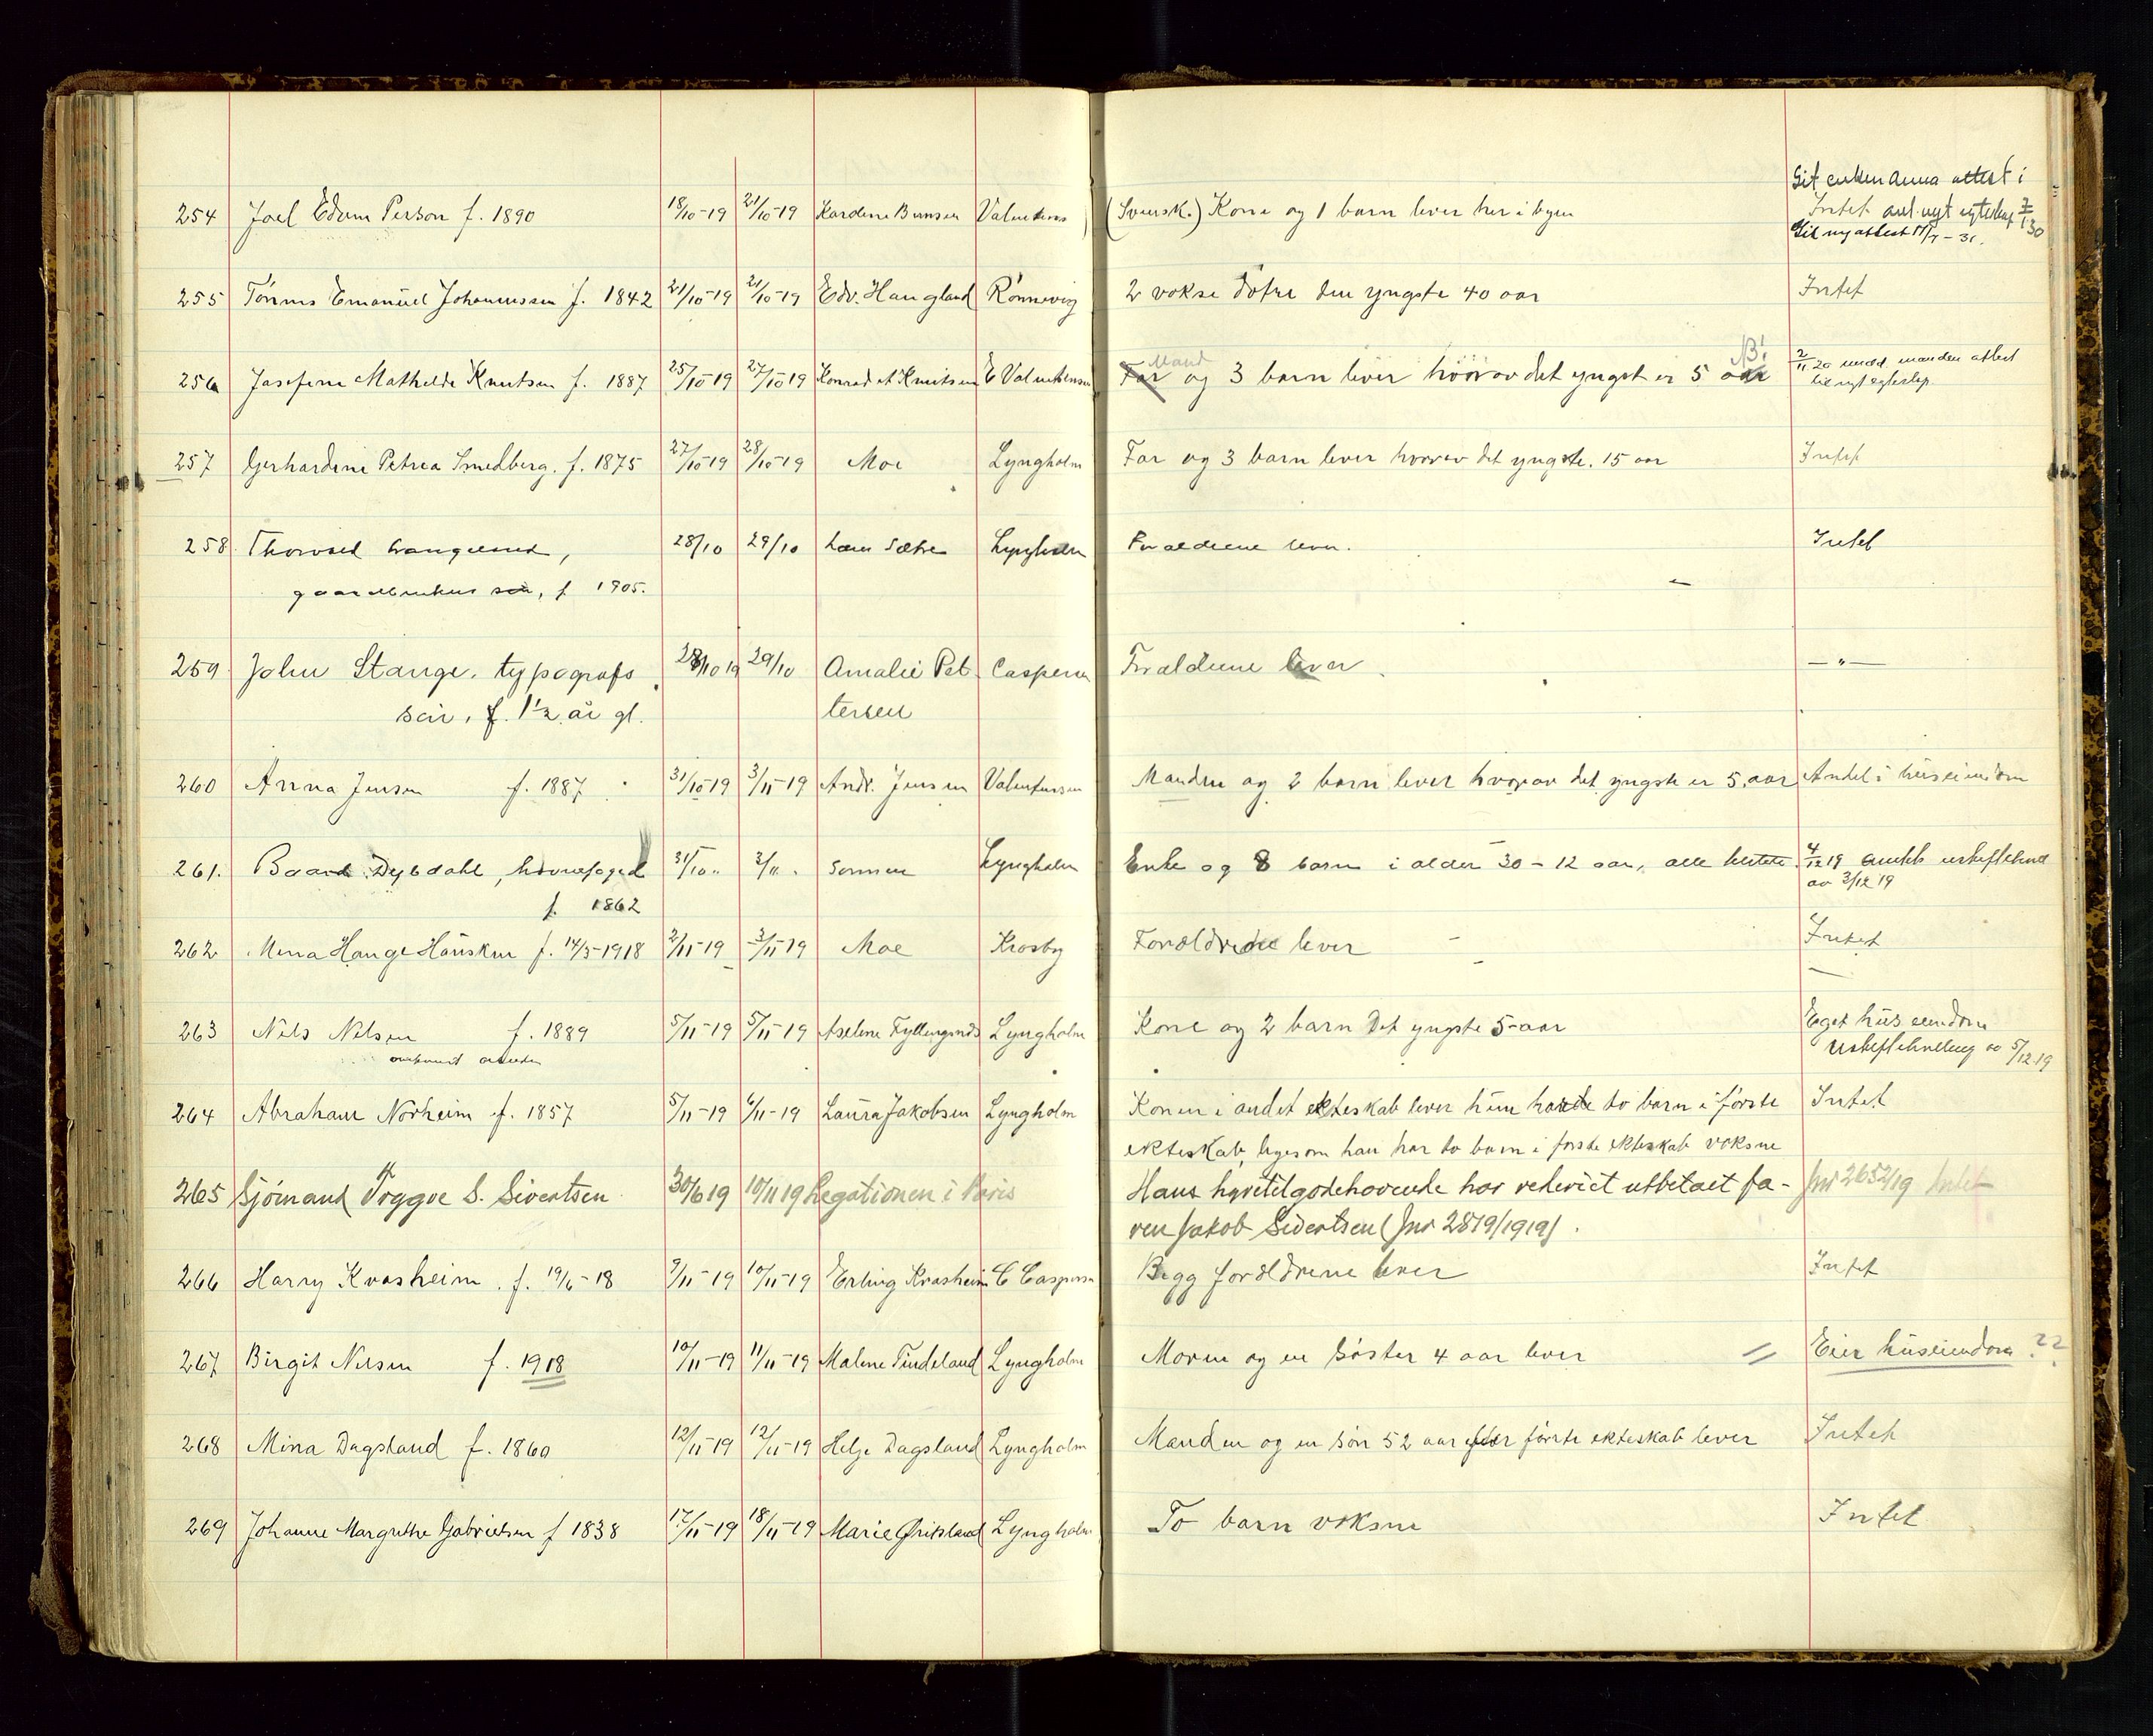 254 Joel Edvin Person f. 1890 18/10-19 21/10-19 Valentinsen (Svensk.) Kone og 1 barn lever her i byen Git enken Anna attest i
Intet anl. nyt egteskap
Git ny attest
255 Tönnes Emanuel Johannessen f. 1842 21/10-19 21/10-19 Edv. Haugland Rönnevig 2 voksne dötre den yngste 40 aar Intet
256 Josefine Mathilde Knutsen f. 1887 25/10-19 27/10-19 Konrad Knutsen E Valentinsen Far Mand og 3 barn lever hvorav det yngst er 5 aar 2/11 20 manden attest
til nyt egteskap.
257 Gerhardine Petrea Smedberg. f. 1875 27/10-19 28/10-19 Moe Lyngholm Far og 3 barn lever hvorav det yngste. 15 aar Intet
258 Thorvald 28/10 29/10 Lyngholm Foraldrene lever. Intet
gaardbrukers sön, f 1905.
259 John Stange. typografs 28/10 19 29/10 Amalie Pet- Caspersen Foraldrene lever. —"—
sön, f. 1½ år gl. tersen
260 Anna Jensen f. 1887 31/10-19 3/11-19 Andr. Jensen Valentinsen Manden og 2 barn lever hvorav det yngste er 5 aar Andel i huseiendom
261. Baard Dybdahl, havnefoged 31/10 " 3/11 " sönnen Lyngholm Enke og 8 barn i alder 30 - 12 aar, 4/12 19
f. 1862 av 3/12 19
262 Mina Hauge Hausken f. 14/3-1918 2/11-19 3/11-19 Moe Krosby Forældrene lever Intet
263 Nils Nilsen f. 1889 5/11-19 5/11-19 Aseline Lyngholm Kone og 2 barn Det yngste 5 aar Eget hus eiendom
av 5/12.19
264 Abraham Norheim f. 1857 5/11-19 6/11-19 Laura Jakobsen Lyngholm Konen i andet ekteskab lever hun havde to barn i förste Intet
ekteskab, ligesom han har to barn i förste ekteskab voksne
265 Sjömand Tryggve S. Sivertsen 30/6 19 10/11 19 Legationen i Paris Hans hyretilgodehavende har rederiet utbetalt fa- Jnr 2652/19 Intet
ren Jakob Sivertsen (Jnr 2819/1919).
266 Harry Kvasheim. f. 19/6-18 9/11-19 10/11-19 Erling Kvasheim C Caspersen Begg forældrene lever Intet
267 Birgit Nilsen f. 1918 10/11-19 11/11-19 Malene Tindeland Lyngholm Moren og en söster 4 aar lever Eier huseiendom ??
268 Mina Dagsland f. 1860 12/11-19 12/11-19 Helge Dagsland Lyngholm Manden og en sön 52 aar efter förste ekteskab lever Intet
269 Johanne Margrethe Gabrielsen f 1838 17/11-19 18/11-19 Marie Lyngholm To barn voksne Intet